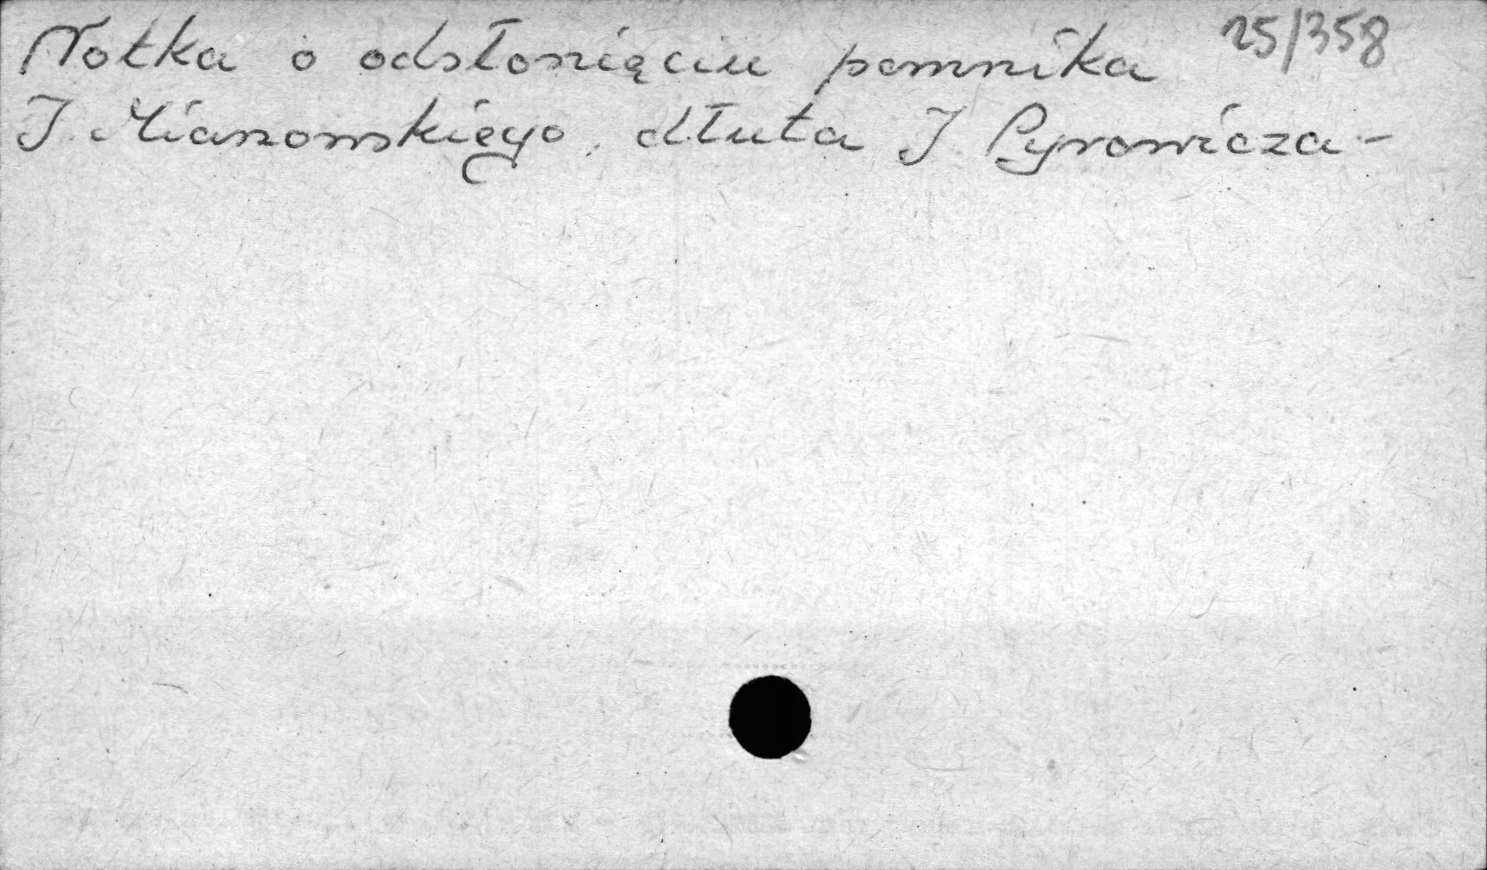 Notka o odsłonięciu pomnika 25/358
J. Mianowskiego, dłuta J. Pyrowicza -